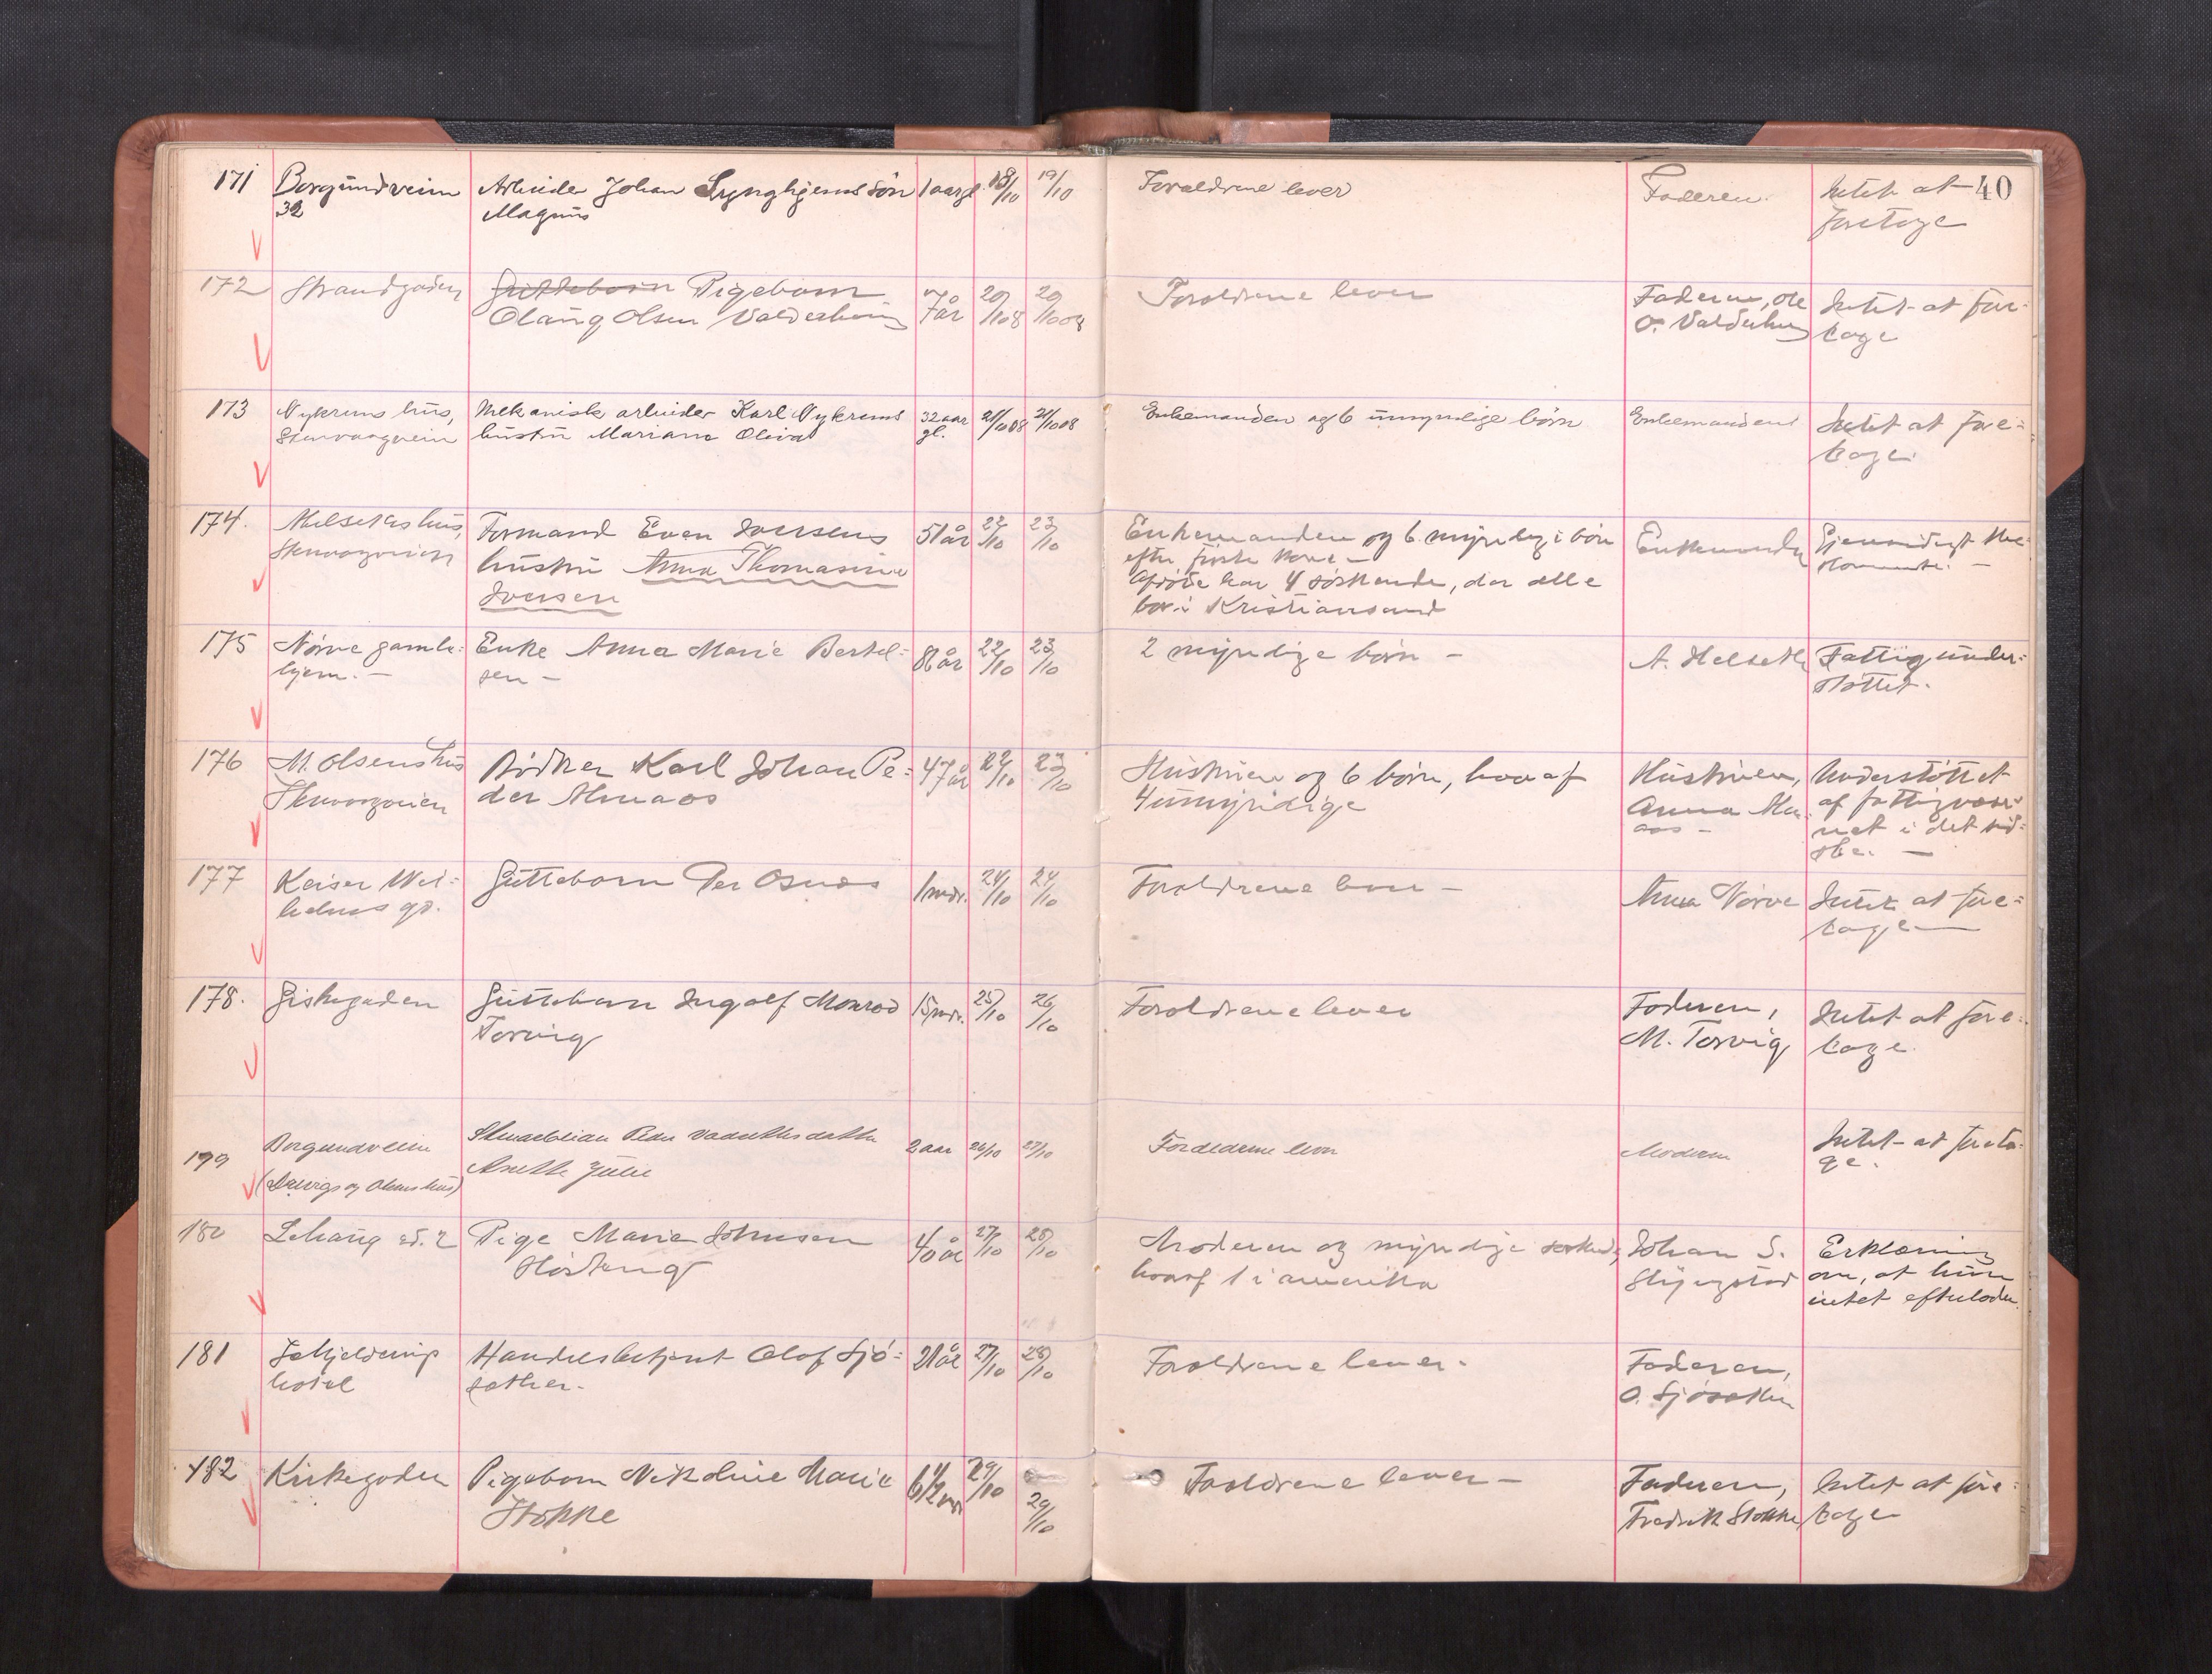 40
171 Borgundveien Arbeider Johan Lynghjems søn 1 aar gl. 18/10 19/10 Forældrene lever Faderen. Intet at
32 Magnus foretage
172 Strandgaden Gutteborn Pigebarn 7 år 20/10 8 20/10 08 Forældrene lever Faderen, Ole Intet at fore-
Olaug Olsen Valderhaug O. Valderhaug tage
173 Nykrems hus, Mekanisk arbeider Karl Nykrems 32 aar 21/10 08 21/10 08 Enkemanden og 6 umyndige børn Enkemanden Intet at fore-
Stenvaagveien hustru Mariane Oliva gl. tage.
174. hus, Formand Even Iversens 51 år 22/10 23/10 Enkemanden og 6 myndige børn Enkemanden
Stenvaagveien hustru Anna Thomasine efter første kone -
Iversen Afdøde har 4 søskende, der alle
bor i Kristiansand
175 Nørve gamle- Enke Anna Marie Bertel- 81 år 22/10 23/10 2 myndige børn - A. Helseth Fattigunder-
hjem. - sen - støttet.
176 M. Olsens hus Bødker Karl Johan Pe- 47 år 22/10 23/10 Hustruen og 6 børn, hvoraf Hustruen, Understøttet
Stenvaagveien der Almaas 4 umyndige Anna Alm- af fattigvæse-
aas - net i det sid-
ste. -
177 Keiser Wil- Gutteborn Per Osnes 1 mdr. 24/10 24/10 Forældrene lever - Anna Nørve Intet at fore-
helms gd. tage -
178. Giskegaden Guttebarn Ingolf Monrad 15 mdr. 25/10 26/10 Forældrene lever Faderen, Intet at fore-
Torvig M. Torvig tage.
179 Borgundveien Peder datter 2 aar 26/10 27/10 Forældrene lever Moderen Intet at foreta-
og Olsens hus) Anette Julie ge.
180 Lihaug ad. 2 Pige Marie Johnsen 40 år 27/10 28/10 Moderen og myndige søskende, Johan S. Erklæring
hvoraf 1 i amerika om, at hun
intet efterlader.
181 Schjelderup Handelsbetjent Olaf Sjö- 21 år 27/10 28/10 Forældrene lever. Faderen,
hotel sether. O. Sjøsether
182 Kirkegaden Pigebarn Nikoline Marie 6 1/2 mdr 29/10 29/10 Forældrene lever - Faderen, Intet at fore-
Stokke Fredrik Stokke tage